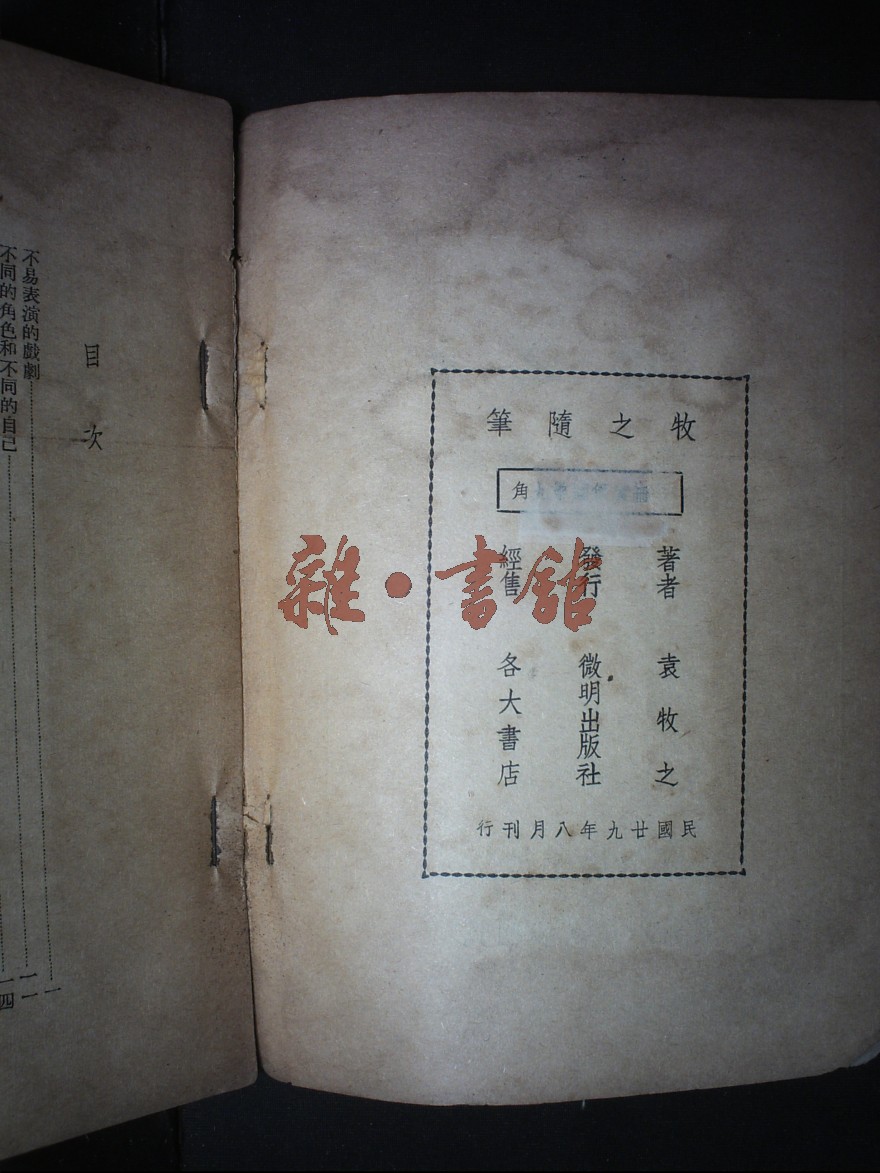 牧之隨筆
角
著者 袁牧之
發行 微明出版社
經售 各大書店
民國廿九年八月刊行
雜·書館
目次
不易表演的戲劇
一
不同的角色和不同的自己